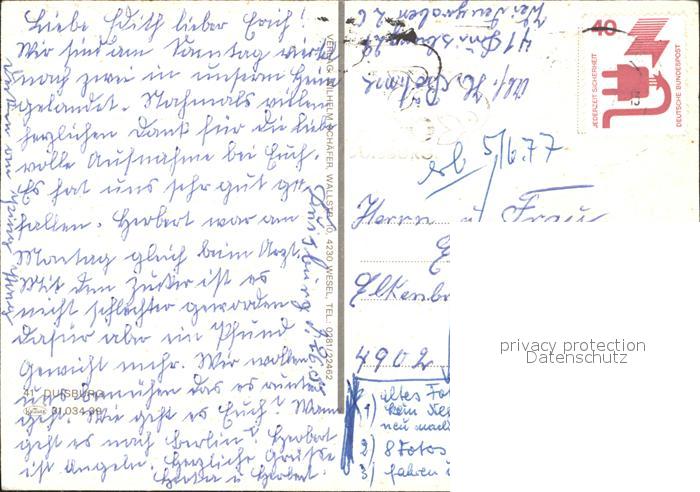 Liebe Edith lieber Erich!
Wir sind am Sonntag
nach zwei in unserm Heim
gelandet. Nochmals vielen
herzlichen Dank für die lieb
volle Aufnahme bei Euch.
Es hat uns sehr gut ge-
fallen. Herbert war am
Montag gleich beim Arzt.
Mit dem Zucker ist es
nicht schlechter geworden
dafür aber ein Pfund
Gewicht mehr. Wir wollen
uns bemühen das es runter
geht. Wie geht es Euch? Wann
geht es nach Berlin? Herbert
ist angeln. Herzliche Grüße
Herta u Herbert.
Duisburg
VERLAG WILHELM SCHÄFER, WALLSTR. 10, 4230 WESEL, TEL. 0281/22462
41 DUISBURG
Krüger 31.034.39
41 Duisburg
40
JEDERZEIT SICHERHEIT
DEUTSCHE BUNDESPOST
erl 5/6.77
Herrn u Frau
E
Elkenb
4902
1) altes Fot
kein Ne
neu mach
2) 8 Fotos
3) fahren i
privacy protection
Datenschutz